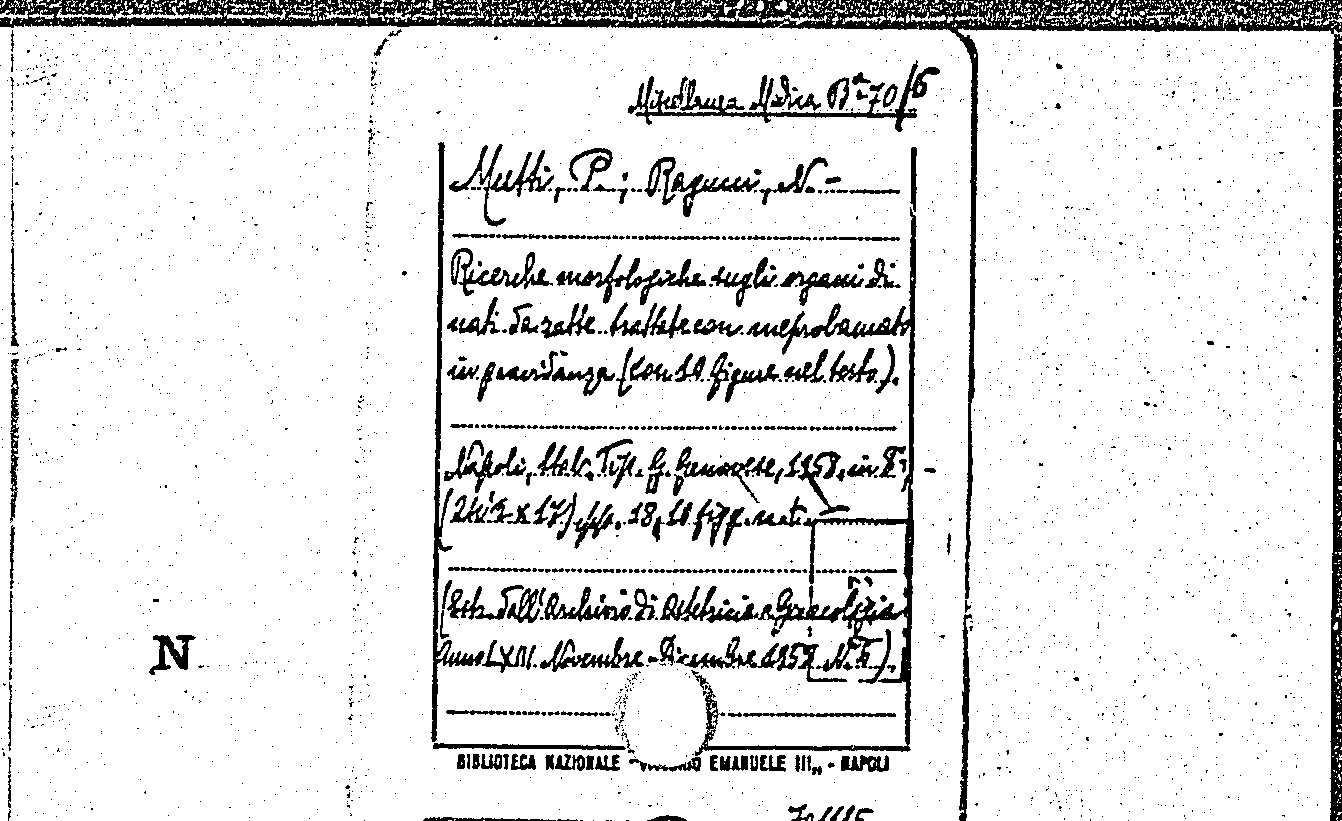 Miscellanea Medica Bª 70/6
Mutti, P.; Ragucci, N. -
Ricerche morfologiche sugli organi di
nati da ratte trattate con meprobamato
in gravidanza (con 10 figure nel testo).
Napoli, Stab. Tip. G. Genovese, 1958, in 8º, -
(24,5 x 17) pp. 18, 10 figg. n.t. -
(Estr. dall'Archivio di Ostetricia e Ginecologia
Anno LXIII. Novembre-Dicembre 1958 N. 6).
N
BIBLIOTECA NAZIONALE - EMANUELE III„ - NAPOLI